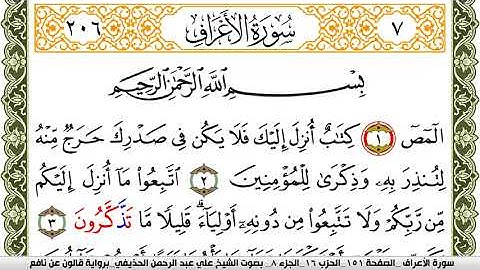 ٧ سُورَةُ الْأَعْرَافِ ٢٠٦
بِسْمِ اللَّهِ الرَّحْمَٰنِ الرَّحِيمِ
الٓمٓصٓ ١ كِتَٰبٌ أُنزِلَ إِلَيْكَ فَلَا يَكُن فِى صَدْرِكَ حَرَجٌ مِّنْهُ
لِتُنذِرَ بِهِۦ وَذِكْرَىٰ لِلْمُؤْمِنِينَ ٢ اَتَّبِعُوا مَآ أُنزِلَ إِلَيْكُم
مِّن رَّبِّكُمْ وَلَا تَتَّبِعُوا مِن دُونِهِۦٓ أَوْلِيَآءَ قَلِيلًا مَّا تَذَّكَّرُونَ ٣
سورة الأعراف _الصفحة ١٥١ _الحزب ١٦ _الجزء ٨ _ بصوت الشيخ علي عبد الرحمن الحذيفي _برواية قالون عن نافع